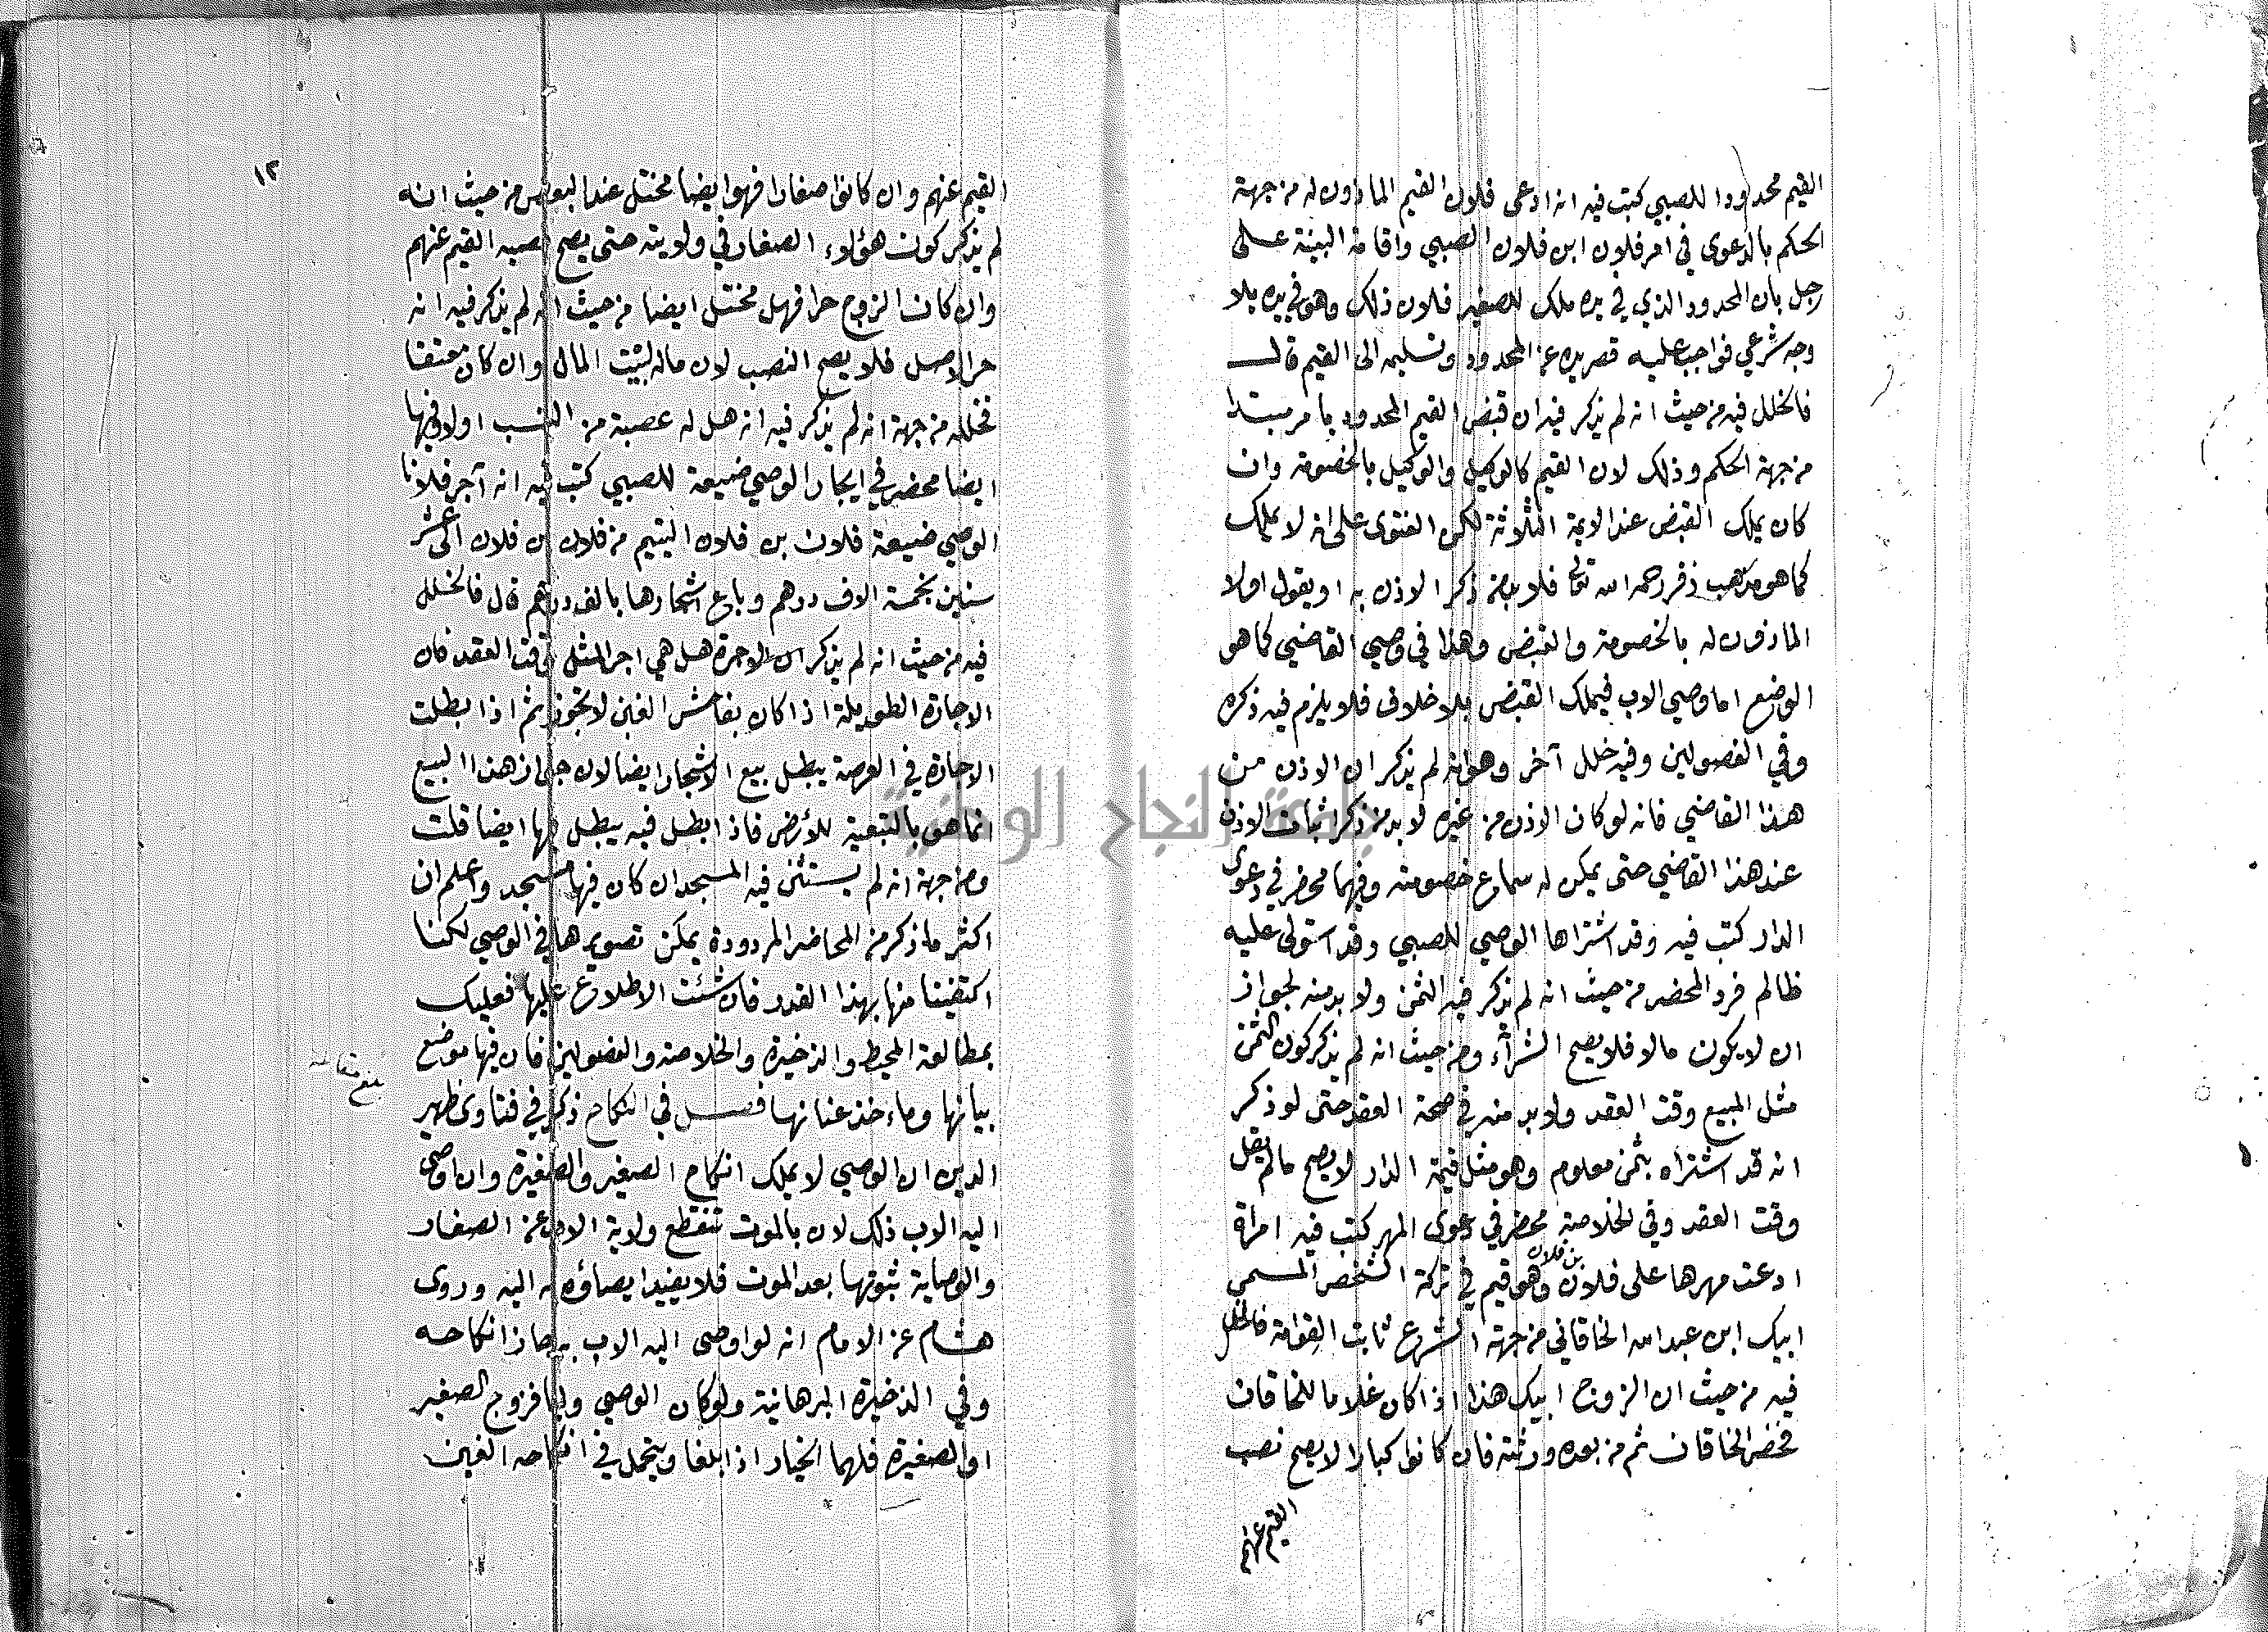 القيم محدودا للصبي كتب فيه انه ادعى فلان القيم الماذون له من جهة
الحكم بالدعوى في امر فلان ابن فلان الصبي واقامة البينة على
رجل بان المحدود الذي في يده ملك للصغير فلان ذلك وهو في يده بلا
وجه شرعي فواجب عليه قصر يده عن المحدود وتسليمه الى القيم قال
فالخلل فيه من حيث انه لم يذكر فيه ان قبض القيم المحدود بامر مبتدا
من جهة الحكم وذلك لان القيم كالوكيل والوكيل بالخصومة وان
كان يملك القبض عند الايمة الثلاثة لكن الفتوى على انه لا يملك
كما هو مذهب زفر رحمه الله تعالى فلا بد من ذكر الاذن به او يقول اولا
الماذون له بالخصومة والقبض وهذا في وصي القاضي كما هو
الوضع اما وصي الاب فيملك القبض بلا خلاف فلا يلزم فيه ذكره
وفي الفصولين وفيه خلل آخر وهو انه لم يذكر ان الاذن من
هذا القاضي فانه لو كان الاذن من غيره لا بد من ذكر اثبات الاذن
عند هذا القاضي حتى يمكن له سماع خصومته وفيهما محضر في دعوى
الدار كتب فيه وقد اشتراها الوصي للصبي وقد استولى عليه
ظالم فرد المحضر من حيث انه لم يذكر فيه الثمن ولا بد منه لجواز
ان لا يكون مالا فلا يصح الشراء ومن حيث انه لم يذكر كون الثمن
مثل المبيع وقت العقد ولا بد منه في صحة العقد حتى لو ذكر
انه قد اشتراه بثمن معلوم وهو مثل قيمة الدار لا يصح ما لم يقل
وقت العقد وفي الخلاصة محضر في دعوى المهر كتب فيه امراة
ادعت مهرها على فلان بن فلان وهو قيم في تركة الشخص المسمى
ايبك ابن عبد الله الخاقاني من جهة الشرع ثابت القوامة فالخلل
فيه من حيث ان الزوج ايبك هذا اذا كان غلاما للخاقان
فخصم الخاقان ثم من بعده ورثته فان كانوا كبارا لا يصح نصب
القيم عنهم
١٢
القيم عنهم وان كانوا صغارا فهو ايضا مختل عند البعض من حيث انه
لم يذكر كون هؤلاء الصغار في ولايته حتى يصح نصبه القيم عنهم
وان كان الزوج حرا فهل مختل ايضا من حيث انه لم يذكر فيه انه
حر الاصل فلا يصح النصب لان ماله لبيت المال وان كان معتقا
فخلله من جهة انه لم يذكر فيه انه هل له عصبة من النسب اولا وفيها
ايضا محضر في ايجار الوصي ضيعة للصبي كتب فيه انه آجر فلانا
الوصي ضيعة فلان بن فلان اليتيم من فلان بن فلان احدى عشر
سنين بخمسة الاف درهم وباع اشجارها بالف درهم قال فالخلل
فيه من حيث انه لم يذكر ان الاجرة هل هي اجر المثل وقت العقد فان
الاجارة الطويلة اذا كان بفاحش الغبن لا تجوز ثم اذا بطلت
الاجارة في العرصة يبطل بيع الاشجار ايضا لان جواز هذا البيع
انما هو بالتبعية للأرض فاذا بطل فيه يبطل فيها ايضا قلت
ومن جهة انه لم يستثنى فيه المسجد ان كان فيها مسجد واعلم ان
اكثر ما ذكر من المحاضر المردودة يمكن تصويرها في الوصي لكننا
اكتفينا منها بهذا القدر فان شئت الاطلاع عليها فعليك
بمطالعة المحيط والذخيرة والخلاصة والفصولين فان فيها موضع
بيانها وماءخذ عنانها فصل في النكاح ذكر في فتاوى ظهير
الدين ان الوصي لا يملك انكاح الصغير والصغيرة وان اوصى
اليه الاب ذلك لان بالموت تنقطع ولاية الاب عن الصغار
والوصاية ثبوتها بعد الموت فلا يفيد ايصاؤه به اليه وروى
هشام عن الامام انه لو اوصى اليه الاب به جاز انكاحه
وفي الذخيرة البرهانية ولو كان الوصي وليا فزوج الصغير
او الصغيرة فلهما الخيار اذا بلغا ويتحمل في انكاحه الغبن
جامعة النجاح الوطنية